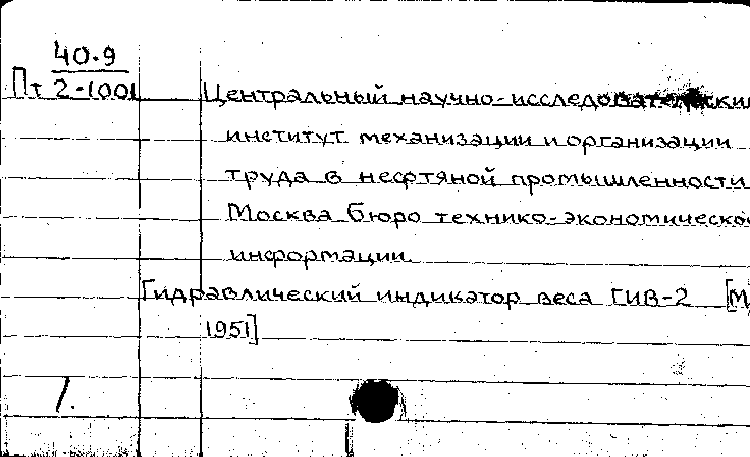 40.9
Пт 2-1001
Центральный научно-исследовательский
институт механизации и организации
труда в нефтяной промышленности
Москва бюро технико-экономическо
информации.
Гидравлический индикатор веса ГИВ-2 [М,
1951]
1.